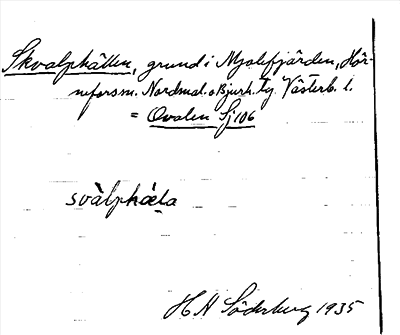 Skvalphällen, grund i Mjölefjärden, Hör-
neforsm. Nordmal. o Bjurh. tg. Västerb. l.
= Ovalen Sj 106
svàlphæ̀la
H H Söderburg 1935